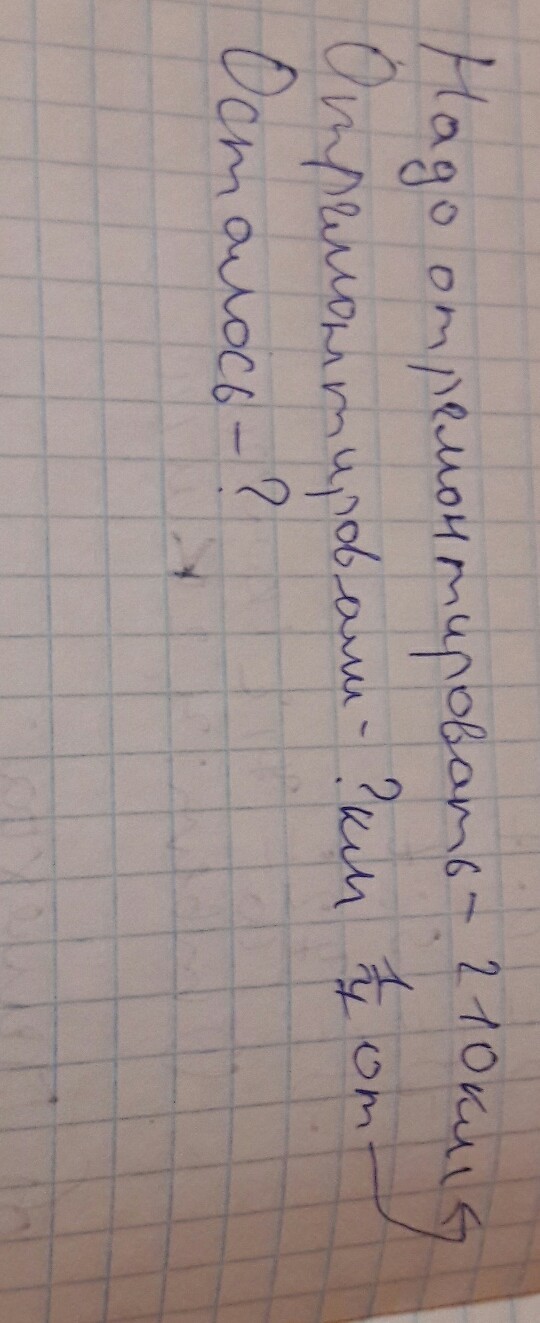 Надо отремонтировать - 210км
Отремонтировали - ?км 1/7 от
Осталось - ?